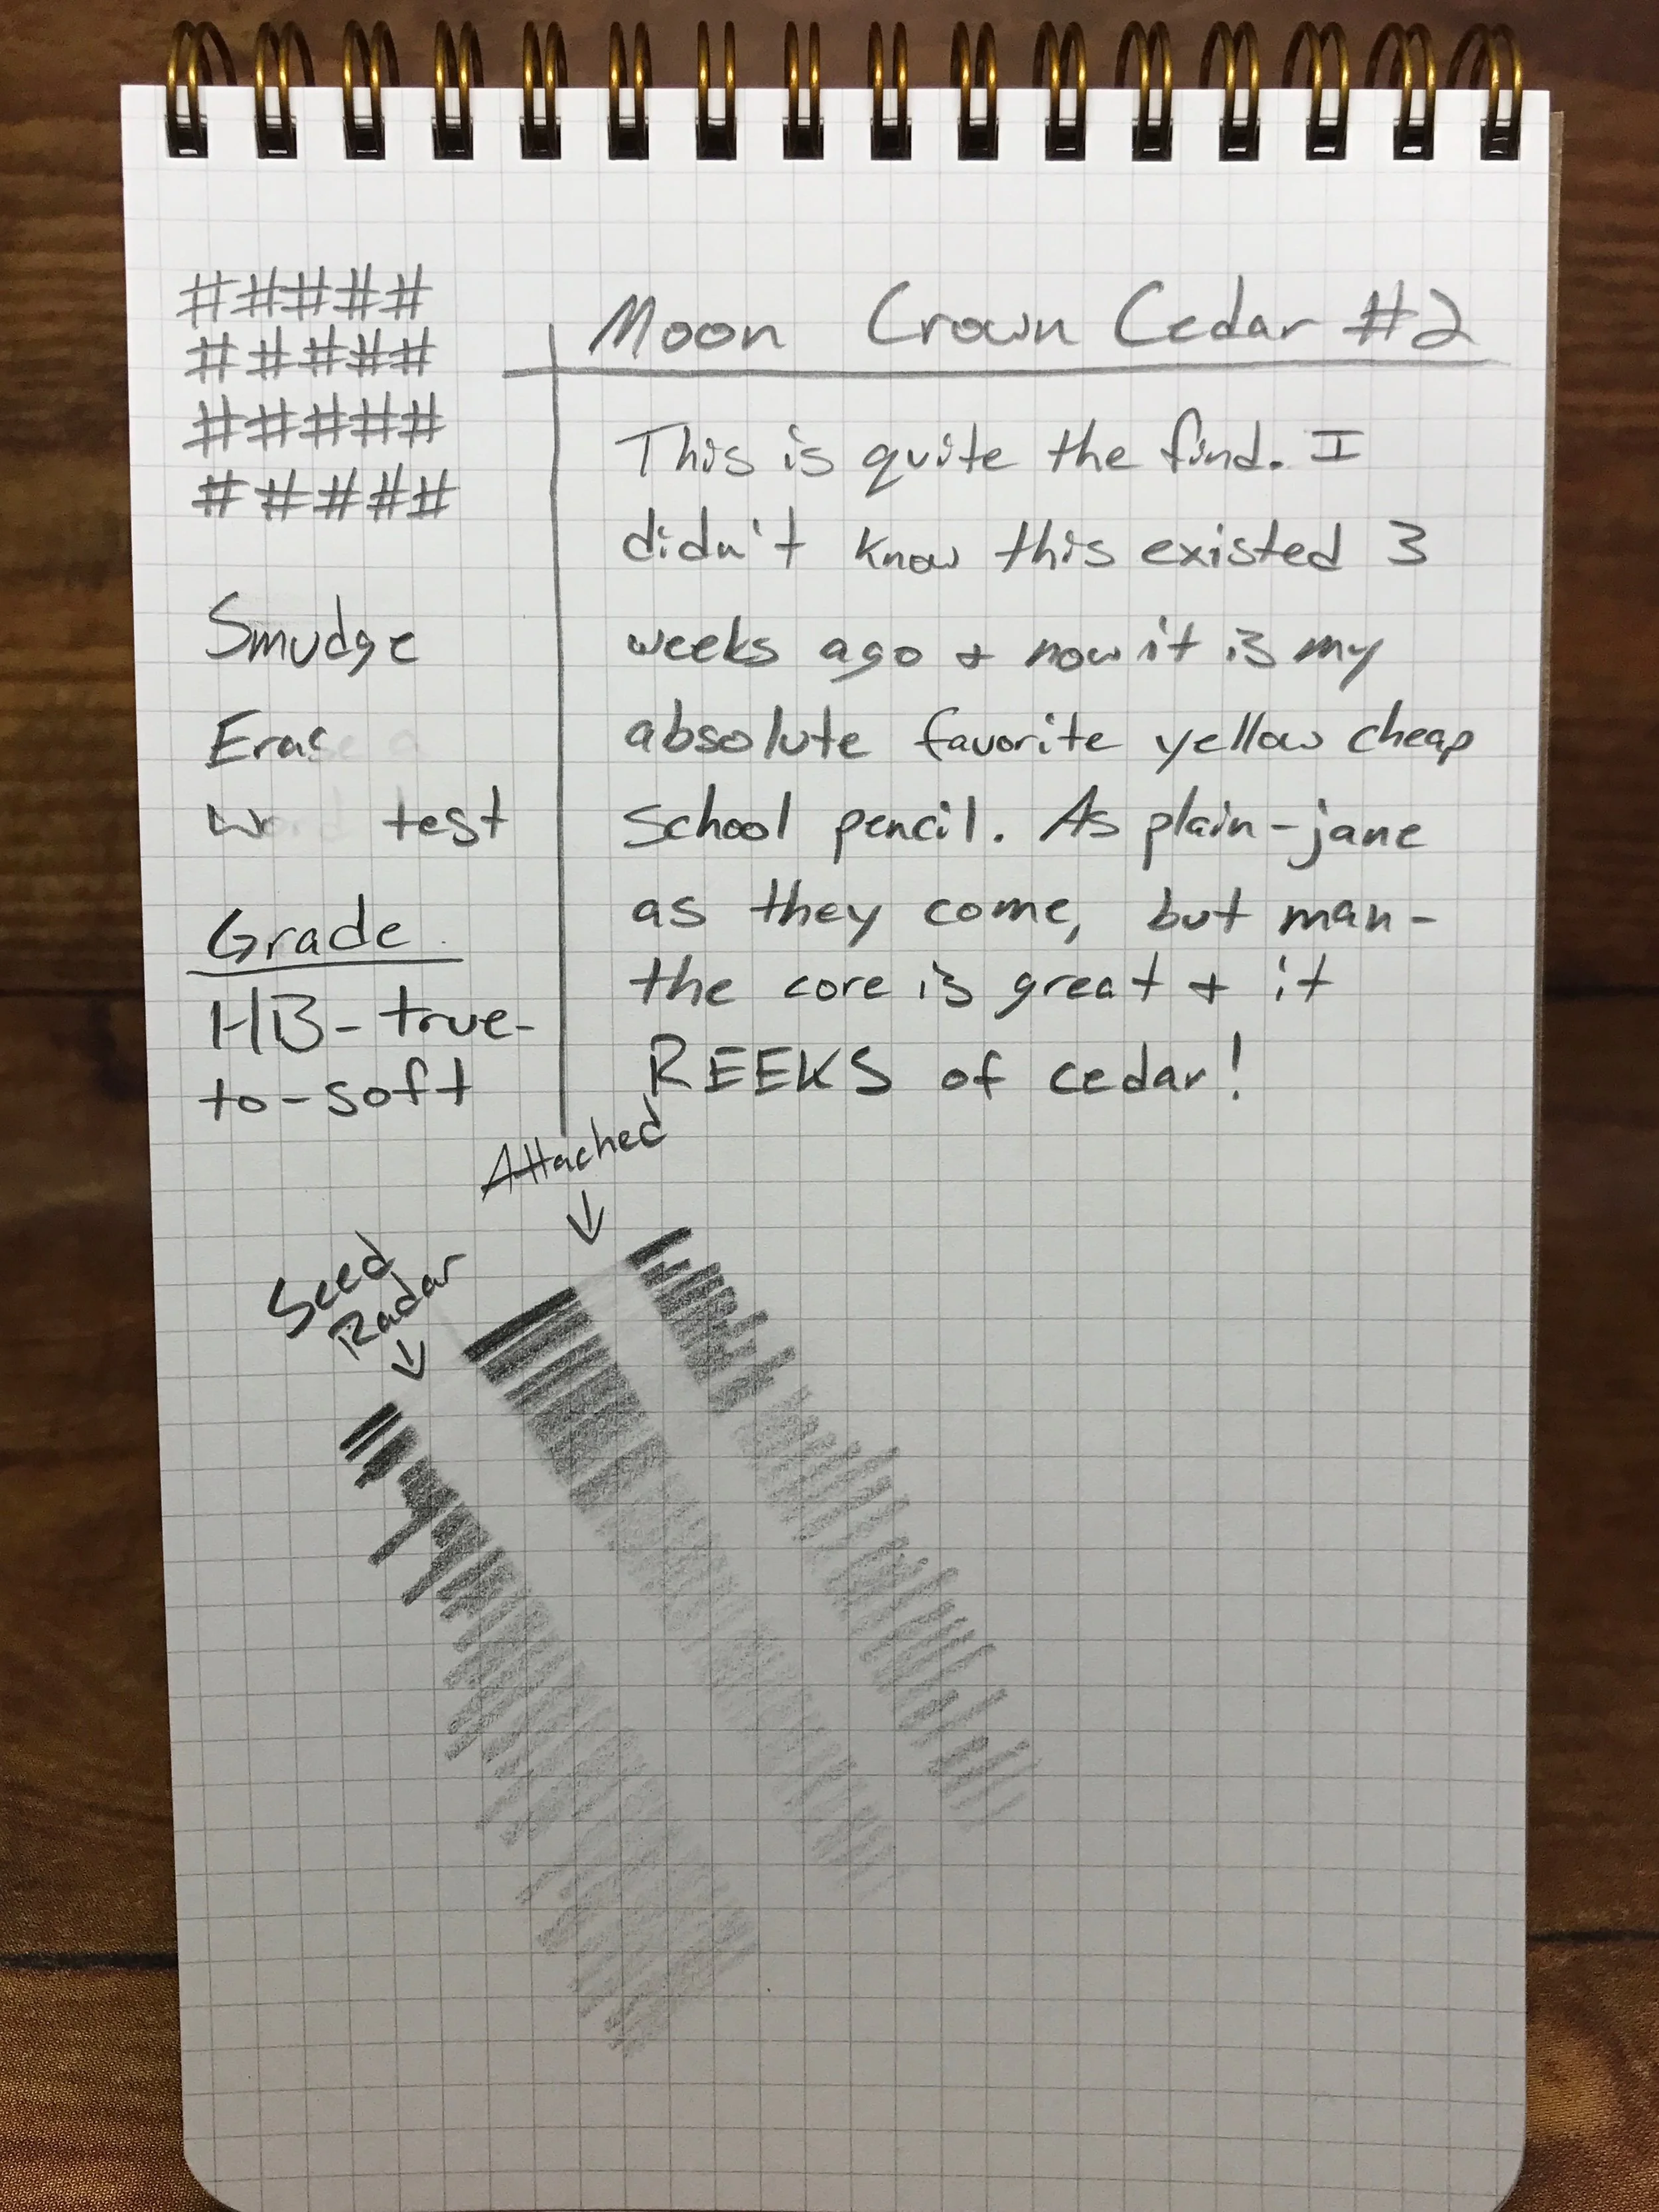 # # # # #
# # # # #
# # # # #
# # # # #
Smudge
Erase a
Word test
Grade
HB-true-
to-soft
Moon Crown Cedar #2
This is quite the find. I
didn't know this existed 3
weeks ago + now it is my
absolute favorite yellow cheap
school pencil. As plain-jane
as they come, but man-
the core is great + it
REEKS of cedar!
Attached
Seed
Radar